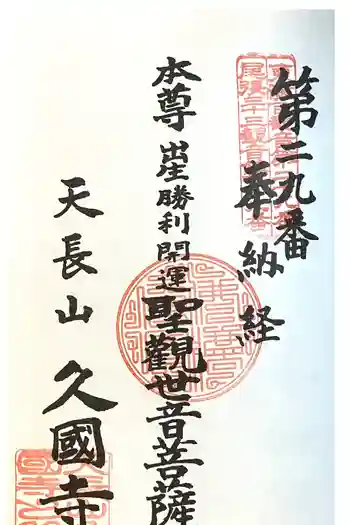 第二九番
奉納経
本尊 出生勝利開運 聖觀世音菩薩
天長山 久國寺